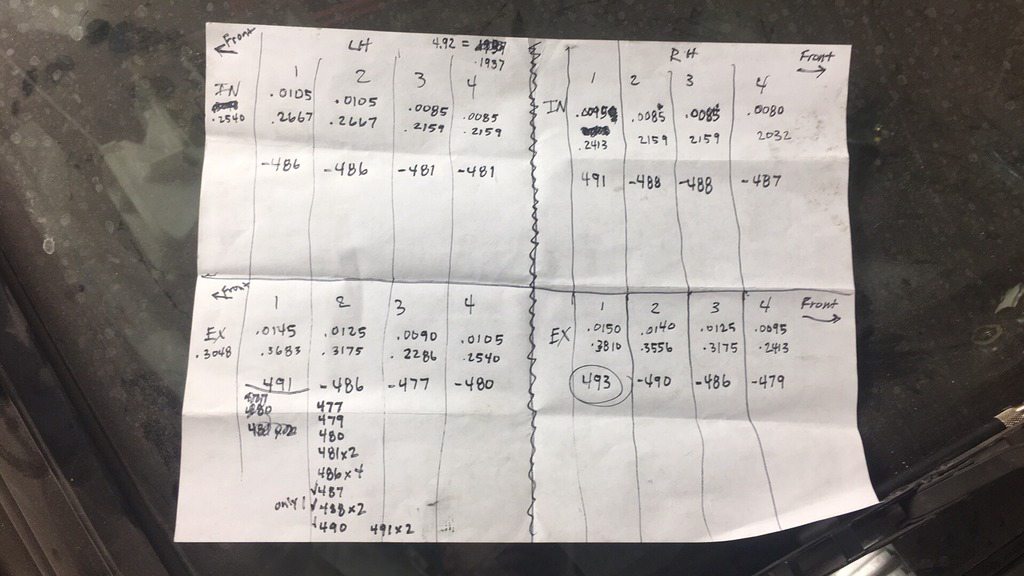 Front LH 4.92 =
.1937
1 2 3 4
IN .0105 .0105 .0085 .0085
.2540 .2667 .2667 .2159 .2159
-486 -486 -481 -481
RH Front
1 2 3 4
IN .0095 .0085 .0085 .0080
.2413 2159 2159 2032
491 -488 -488 -487
Front
1 2 3 4
EX .0145 .0125 .0090 .0105
.3048 .3683 .3175 .2286 .2540
491 -486 -477 -480
477
480 479
480
481x2
486x4
√487
only 1 √488x2
√490 491x2
1 2 3 4 Front
EX .0150 .0140 .0125 .0095
.3810 .3556 .3175 .2413
493 -490 -486 -479